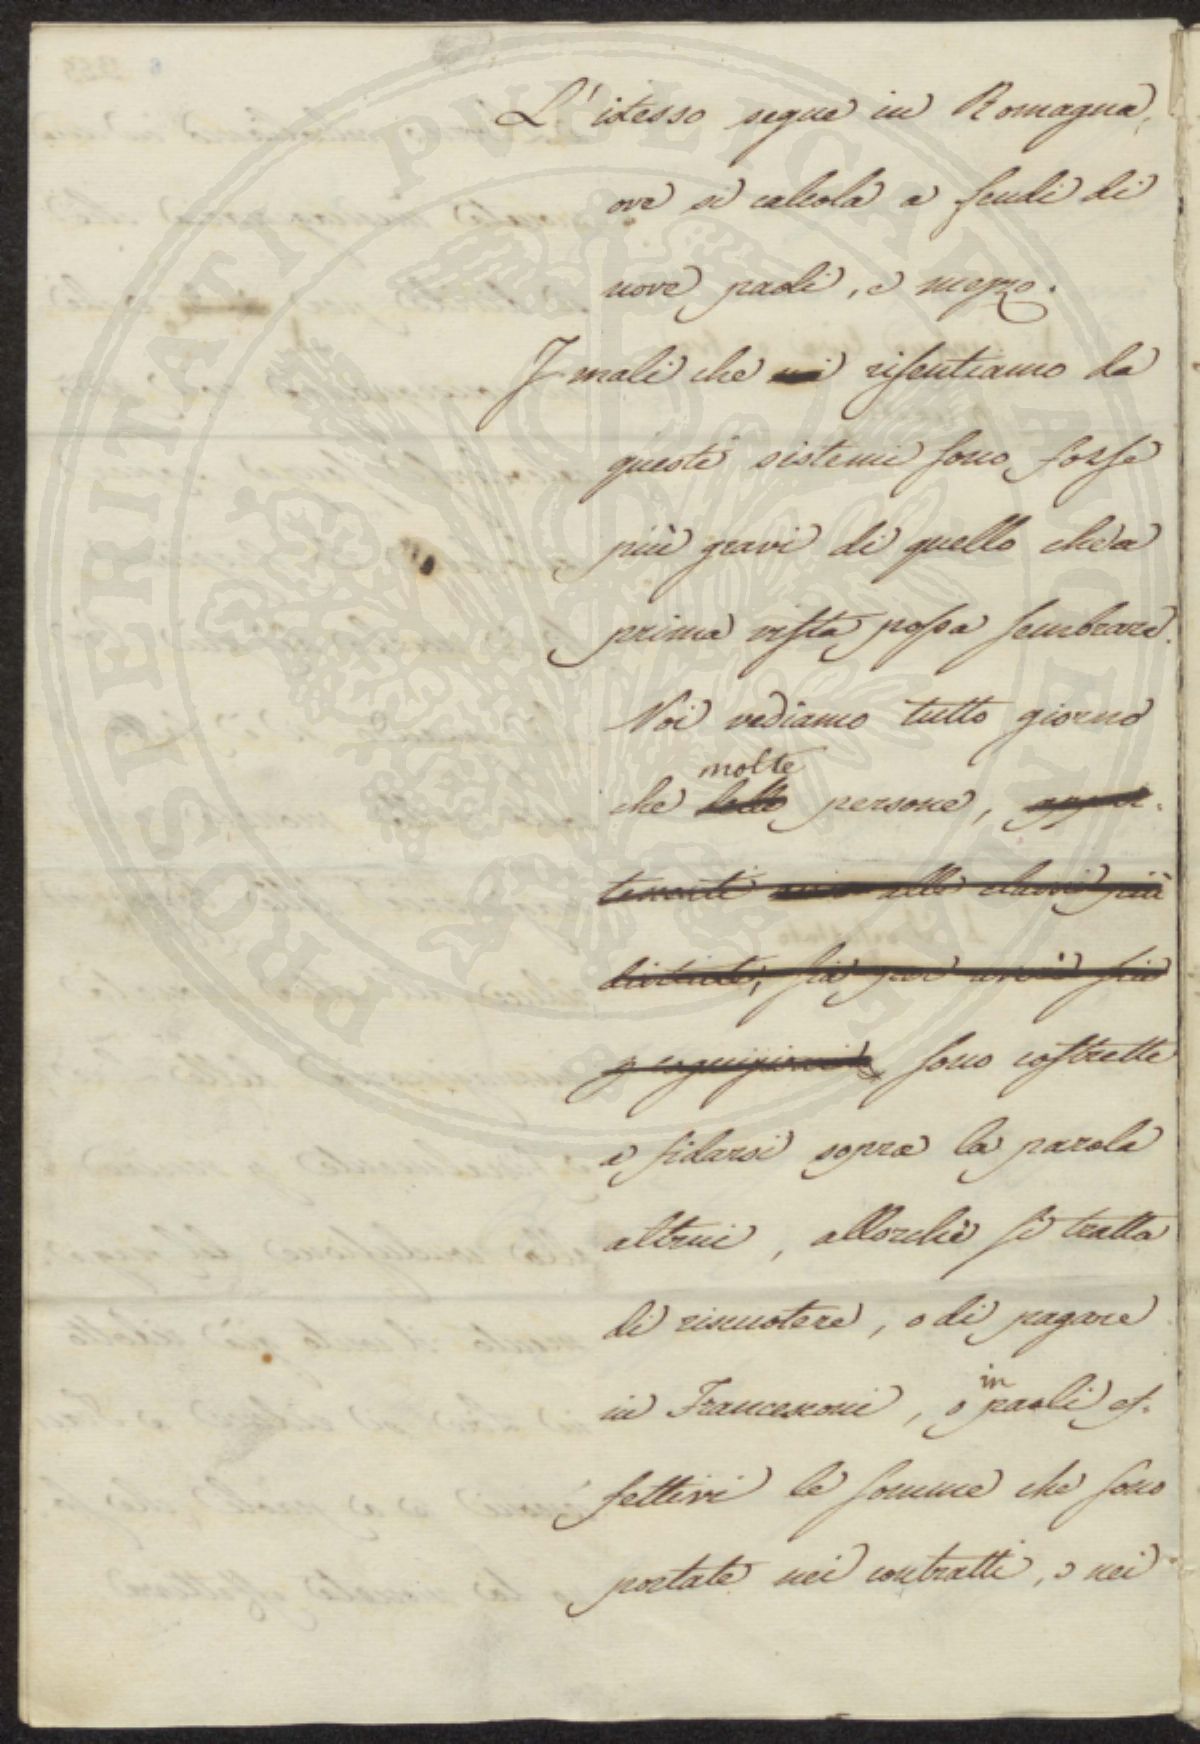 L'istesso segue in Romagna,
ove si calcola a scudi di
nove paoli, e mezzo.
I mali che risentiamo da
questi sistemi sono forse
più gravi di quello che a
prima vista possa sembrare.
Noi vediamo tutto giorno
molte
che delle persone, appar-
tenenti alle classi più
distinte, sia per
sono costrette
a fidarsi sopra la parola
altrui, allorchè si tratta
di riscuotere, o di pagare
in
in Francesconi, o paoli ef-
fettivi le somme che sono
portate nei contratti, o nei
PROSPERITATI PUBLICAE AUGENDAE